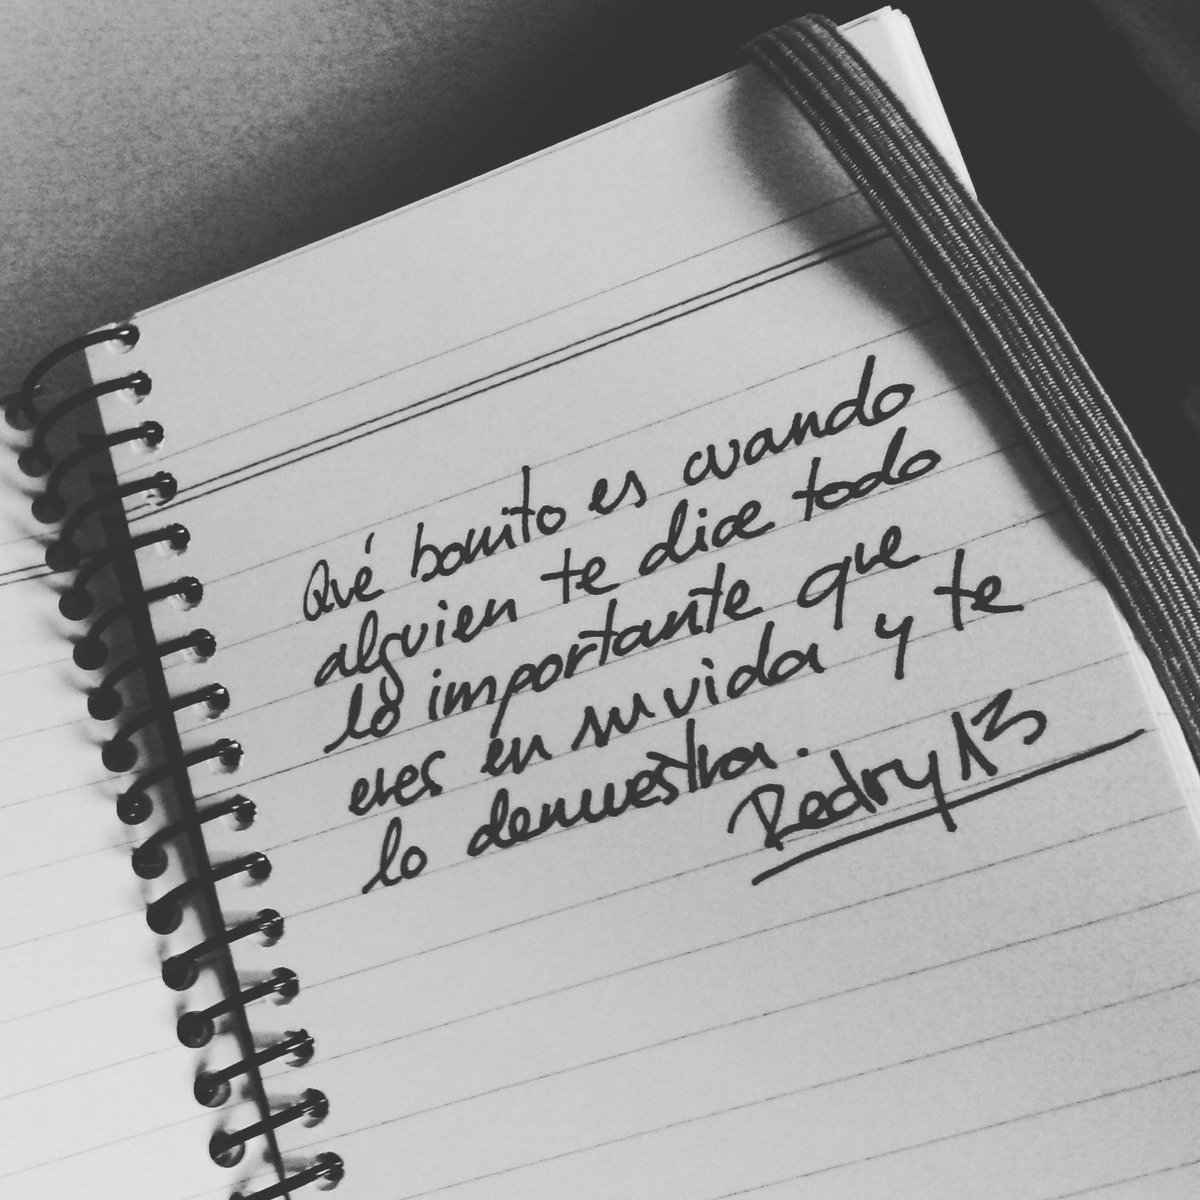 Qué bonito es cuando
alguien te dice todo
lo importante que
eres en su vida y te
lo demuestra.
Redry13